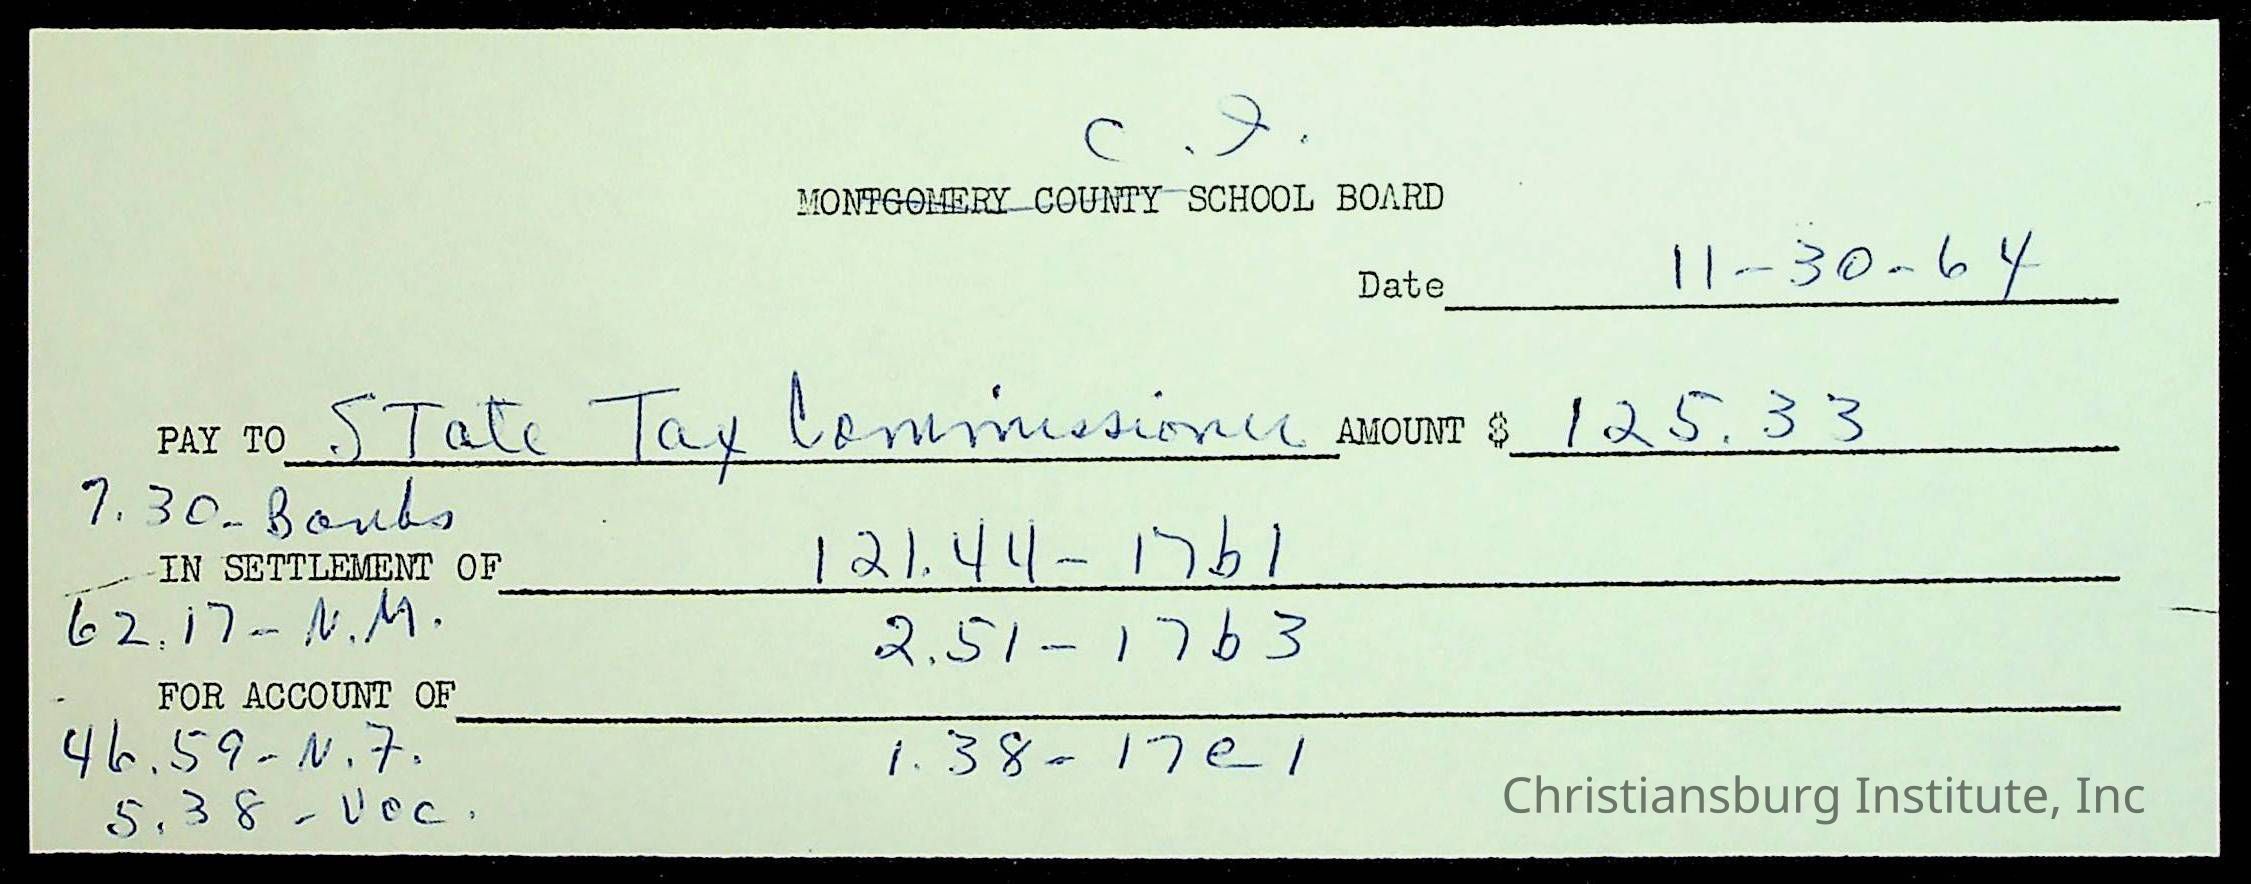 C.I.
MONTGOMERY COUNTY SCHOOL BOARD
Date 11-30-64
PAY TO State Tax Commissioner AMOUNT $ 125.33
7.30-Banks
IN SETTLEMENT OF 121.44-17b1
62.17-N.M. 2.51-17b3
FOR ACCOUNT OF
46.59-N.F. 1.38-17e1
5.38-Voc.
Christiansburg Institute, Inc